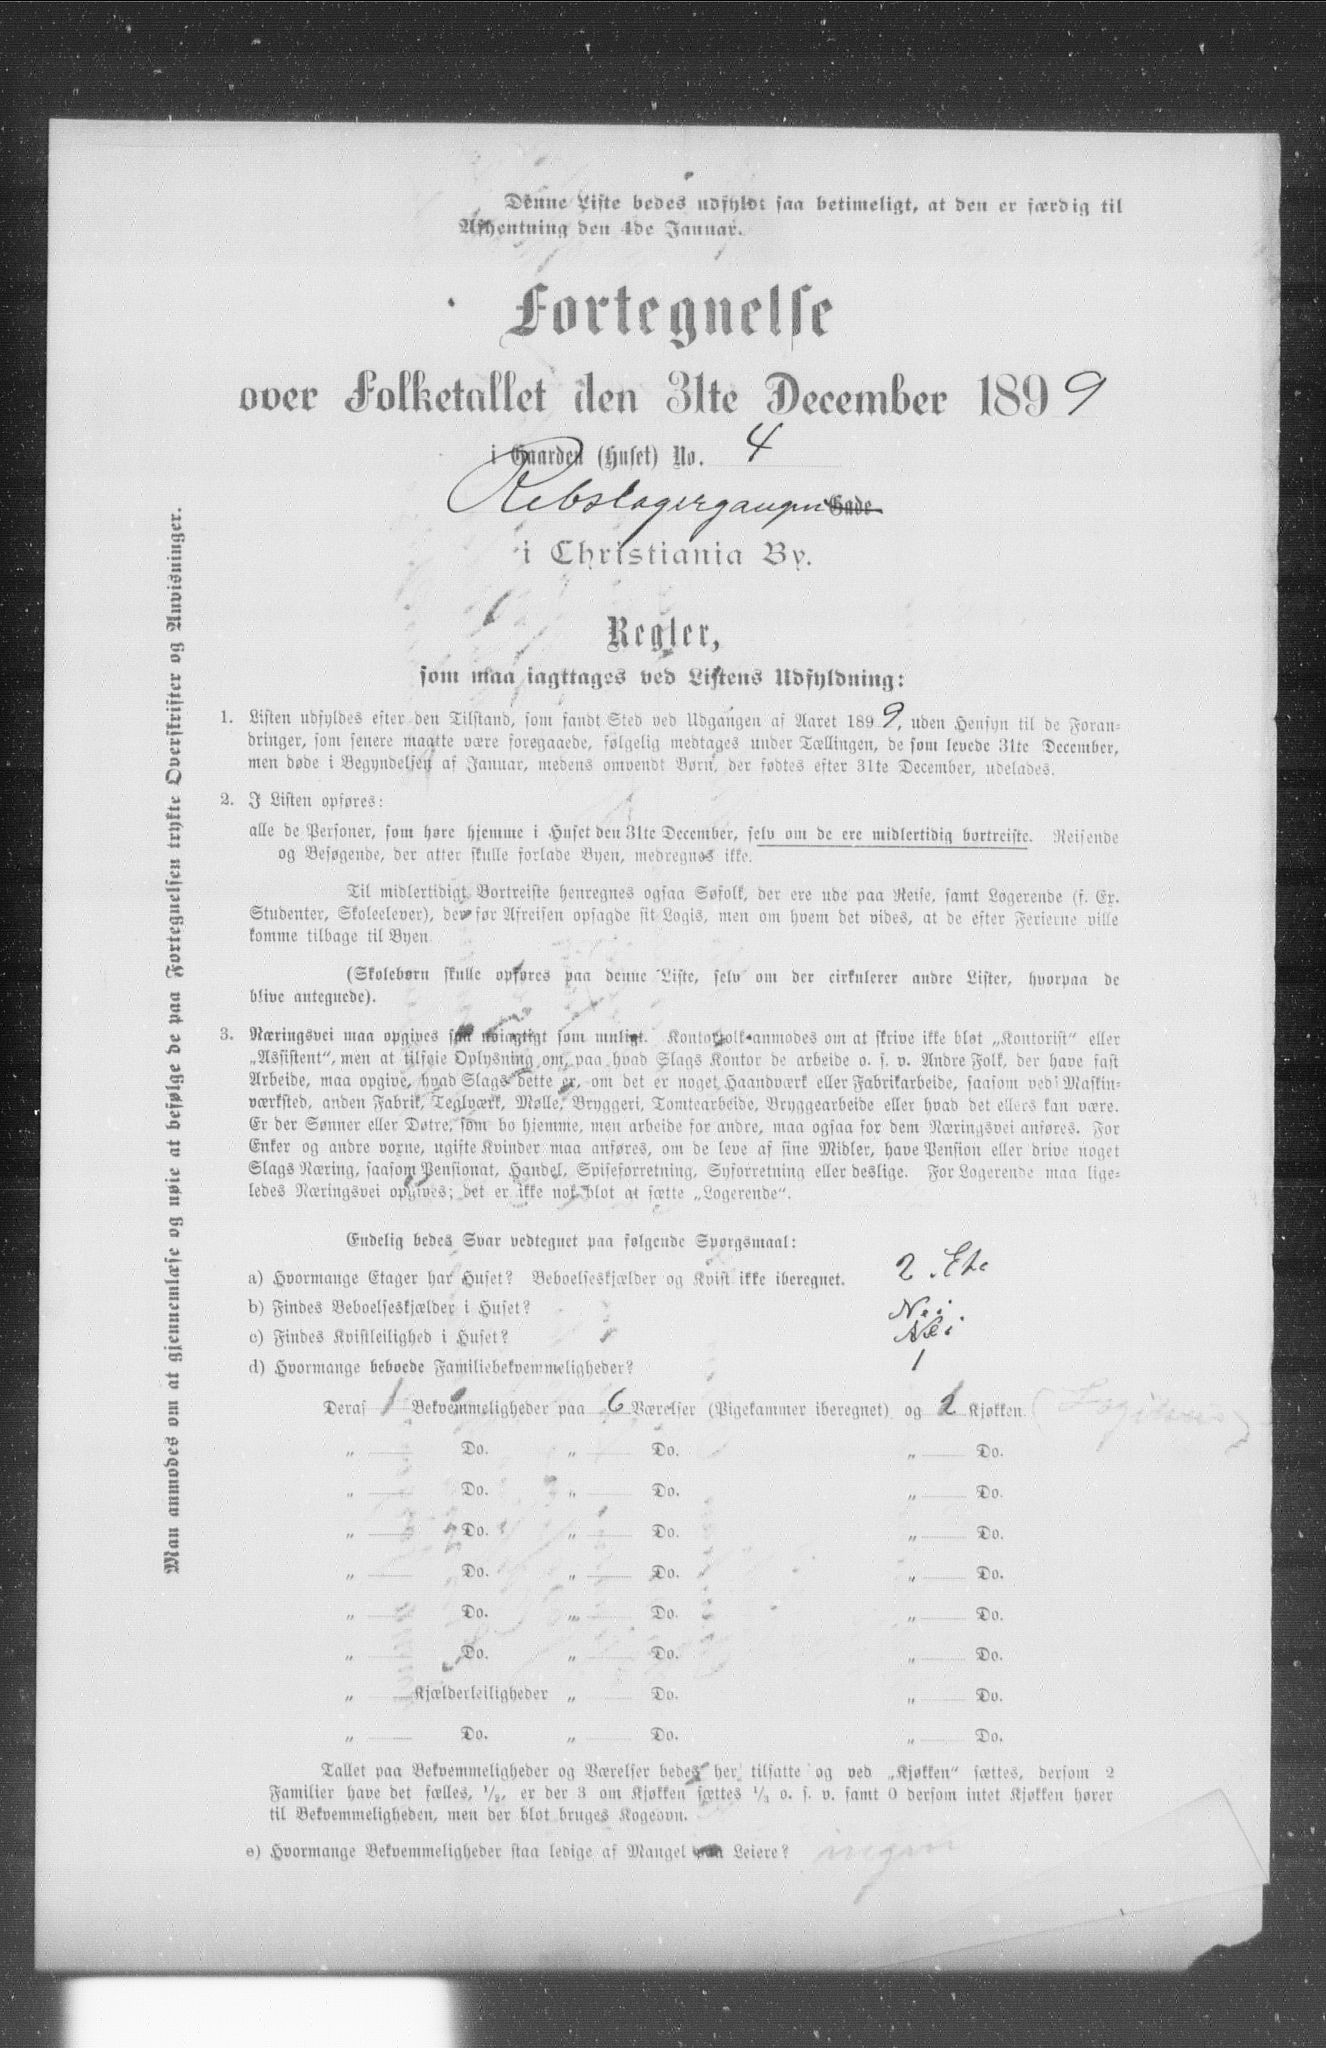 Denne Liste bedes udfyldt saa betimeligt, at den er færdig til
Afhentning den 4de Januar.
Fortegnelse
over Folketallet den 31te December 1899
i Gaarden (Huset) No. 4
Rebslagergangen Gade
i Christiania By.
Regler,
som maa iagttages ved Listens Udfyldning:
1. Listen udfyldes efter den Tilstand, som fandt Sted ved Udgangen af Aaret 1899, uden Hensyn til de Foran-
dringer, som senere maatte være foregaaede, følgelig medtages under Tællingen, de som levede 31te December,
men døde i Begyndelsen af Januar, medens omvendt Børn, der fødtes efter 31te December, udelades.
2. I Listen opføres:
alle de Personer, som høre hjemme i Huset den 31te December, selv om de ere midlertidig bortreiste. Reisende
og Besøgende, der atter skulle forlade Byen, medregnes ikke.
Til midlertidigt Bortreiste henregnes ogsaa Søfolk, der ere ude paa Reise, samt Logerende (f. Ex.
Studenter, Skoleelever), der før Afreisen opsagde sit Logis, men om hvem det vides, at de efter Ferierne ville
komme tilbage til Byen
(Skolebørn skulle opføres paa denne Liste, selv om der cirkulerer andre Lister, hvorpaa de
blive antegnede).
3. Næringsvei maa opgives saa nøiagtigt som muligt. Kontorfolk anmodes om at skrive ikke blot „Kontorist“ eller
„Assistent“, men at tilføie Oplysning om, paa hvad Slags Kontor de arbeide o. s. v. Andre Folk, der have fast
Arbeide, maa opgive, hvad Slags dette er, om det er noget Haandværk eller Fabrikarbeide, saasom ved Maskin-
værksted, anden Fabrik, Teglværk, Mølle, Bryggeri, Tomtearbeide, Bryggearbeide eller hvad det ellers kan være.
Er der Sønner eller Døtre, som bo hjemme, men arbeide for andre, maa ogsaa for dem Næringsvei anføres. For
Enker og andre voxne, ugifte Kvinder maa anføres, om de leve af sine Midler, have Pension eller drive noget
Slags Næring, saasom Pensionat, Handel, Spiseforretning, Syforretning eller deslige. For Logerende maa lige-
ledes Næringsvei opgives; det er ikke nok blot at sætte „Logerende“.
Endelig bedes Svar vedtegnet paa følgende Spørgsmaal:
a) Hvormange Etager har Huset? Beboelseskjælder og Kvist ikke iberegnet. 2 Et.
b) Findes Beboelseskjælder i Huset? Nei
c) Findes Kvistleilighed i Huset? Nei
d) Hvormange beboede Familiebekvemmeligheder? 1
Deraf 1 Bekvemmeligheder paa 6 Værelser (Pigekammer iberegnet) og 2 Kjøkken
„ Do. „ Do. „ Do.
„ Do. „ Do. „ Do.
„ Do. „ Do. „ Do.
„ Do. „ Do. „ Do.
„ Do. „ Do. „ Do.
„ Do. „ Do. „ Do.
„ Kjælderleiligheder „ Do. „ Do.
„ Do. „ Do. „ Do.
Tallet paa Bekvemmeligheder og Værelser bedes her tilsatte og ved „Kjøkken“ sættes, dersom 2
Familier have det fælles, 1/2, er der 3 om Kjøkken sættes 1/3 o. s. v. samt 0 dersom intet Kjøkken hører
til Bekvemmeligheden, men der blot bruges Kogeovn.
e) Hvormange Bekvemmeligheder staa ledige af Mangel paa Leiere? ingen
Man anmodes om at gjennemlæse og nøie at besøge de paa Fortegnelsen trykte Overskrifter og Anvisninger.